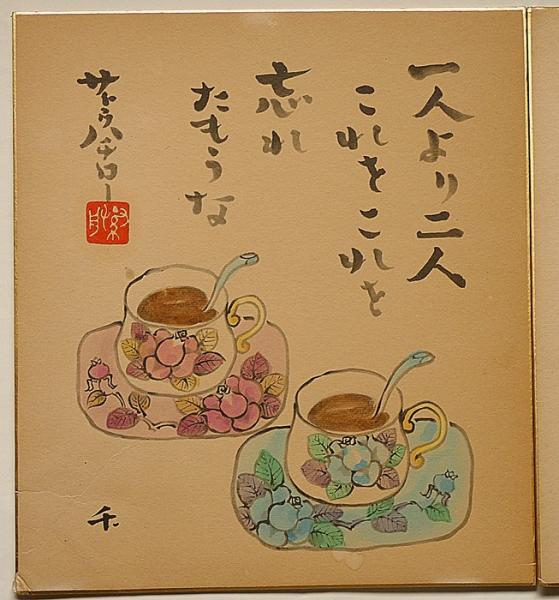 一人より二人
これをこれを
忘れ
たもうな
サトウハチロー
千